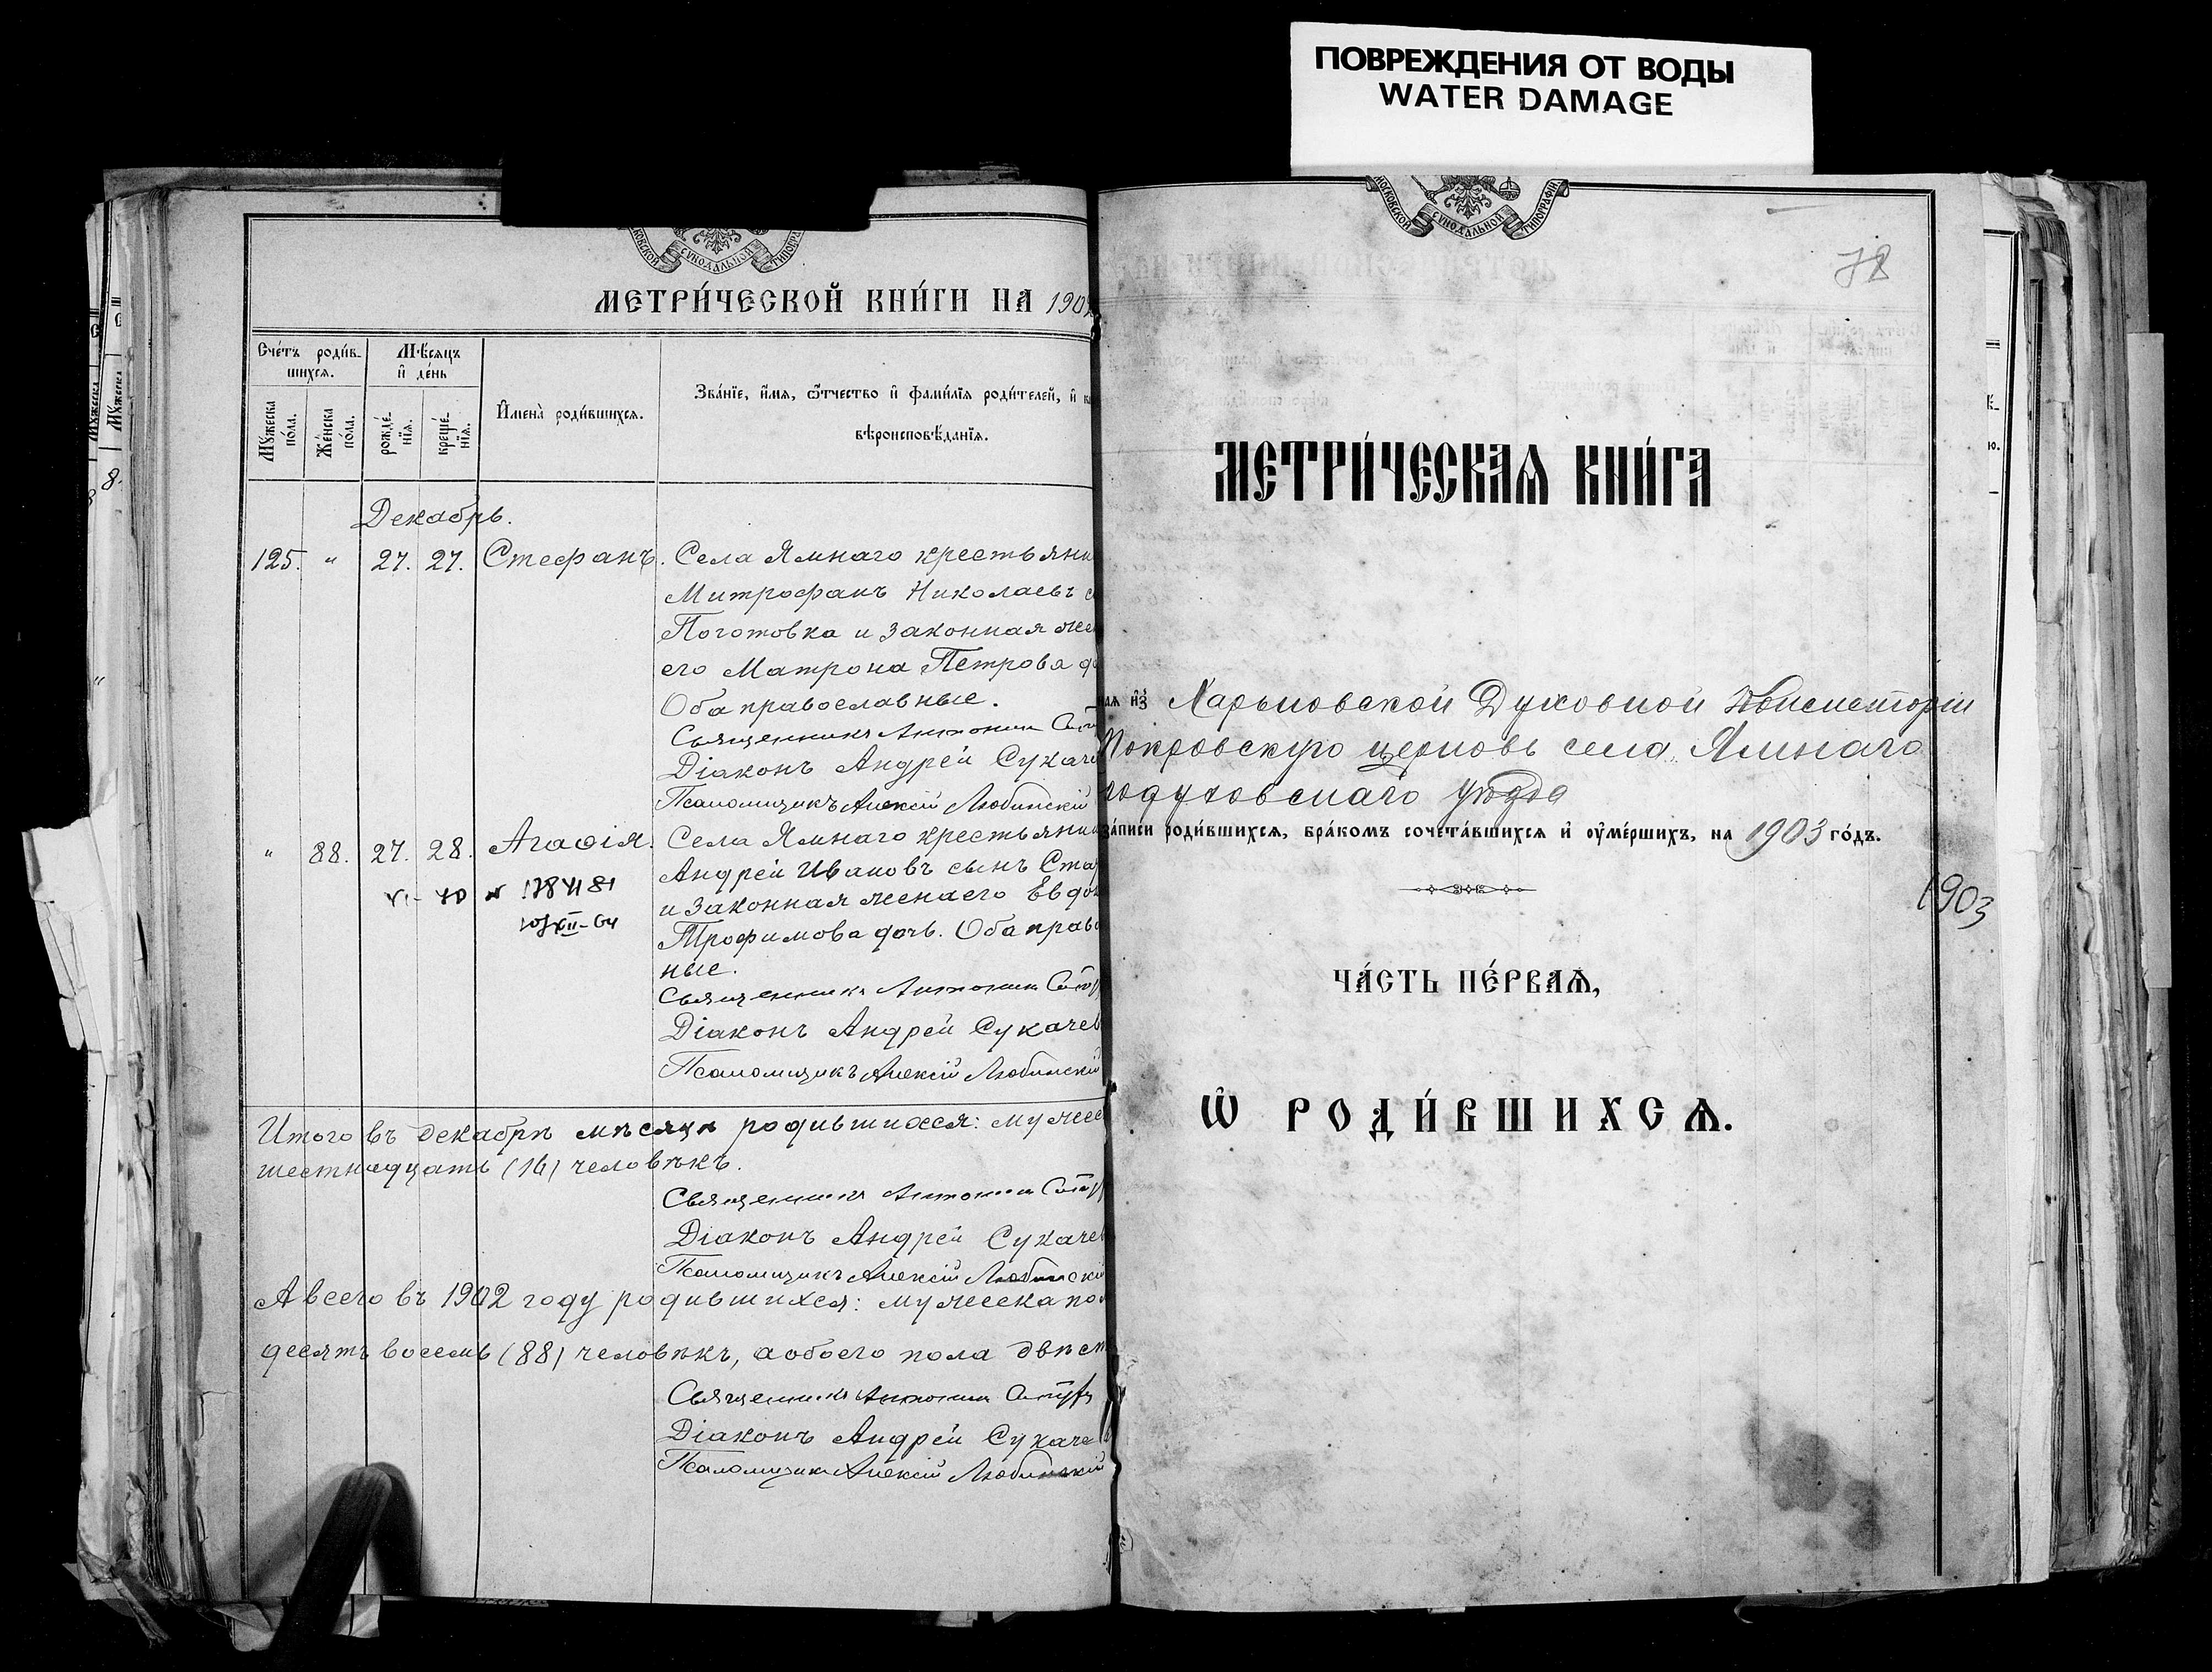 ПОВРЕЖДЕНИЯ ОТ ВОДЫ
WATER DAMAGE
СѴНОДАЛЬНОЙ
МЕТРИ́ЧЕСКОЙ КНИ́ГИ НА 190
Сче́тъ роди́в-
шихсѧ.
Мѣ́сѧцъ
и҆ де́нь
Мꙋ́жеска
по́ла.
Же́нска
по́ла.
рожде́-
нїѧ.
креще́-
нїѧ.
И҆мена̀ роди́вшихсѧ.
Зва́нїе, и҆́мѧ, ѿ́чество и҆ фами́лїѧ роди́телей, и҆
вѣроисповѣ́данїѧ.
Декабрь.
125. " 27. 27. Стефанъ. Села Ямнаго крестьяни
Митрофанъ Николаевъ с
Поготовка и законная же
его Матрона Петрова до
Оба православные.
Священникъ Антонин
Діаконъ Андрей Сукаче
Псаломщикъ Алексій Любинскій
" 88. 27. 28. Агаѳія. Села Ямнаго крестьянин
Андрей Ивановъ сынъ Ста
и законная жена его Евдок
Трофимова дочь. Оба право
ные.
Священникъ Антонин
Діаконъ Андрей Сукачев
Псаломщикъ Алексій Любинскій
Итого въ декабрѣ мѣсяцѣ родившихся: мужес
шестнадцать (16) человѣкъ.
Священникъ Антонин
Діаконъ Андрей Сукачев
Псаломщикъ Алексій Любинскій
А всего въ 1902 году родившихся: мужеска пол
десятъ восемь (88) человѣкъ, а обоего пола двѣст
Священникъ Антонин
Діаконъ Андрей Сукаче
Псаломщикъ Алексій Любинскій
МОСКОВСКОЙ СѴНОДАЛЬНОЙ ТИПОГРАФІИ
78
МЕТРИ́ЧЕСКАѦ КНИ́ГА
наѧ и҆зъ Харьковской Духовной Консисторіи
Покровскую церковь села Ямнаго
годуховскаго уѣзда
за́писи роди́вшихсѧ, бра́комъ сочета́вшихсѧ и҆ ᲂу҆ме́ршихъ, на 1903 го́дъ.
1903
ЧА́СТЬ ПЕ́РВАѦ,
Ѡ҆ РОДИ́ВШИХСѦ.